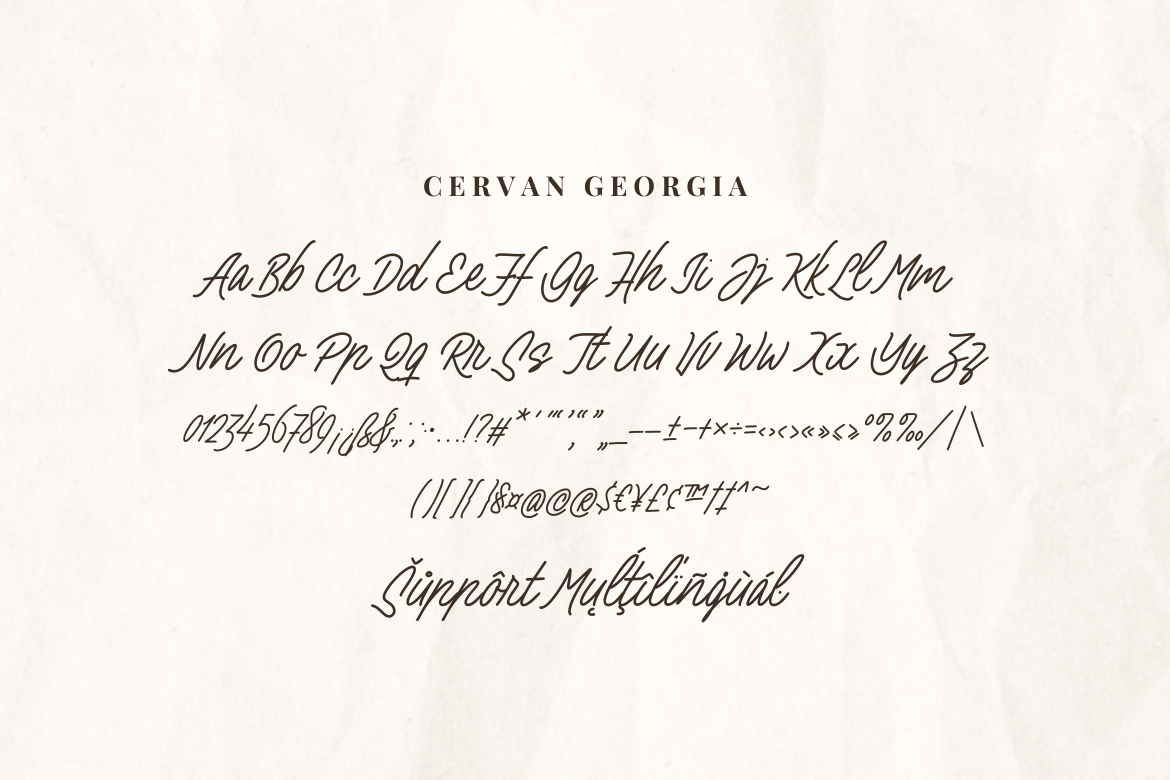 CERVAN GEORGIA
Aa Bb Cc Dd Ee Ff Gg Hh Ii Jj Kk Ll Mm
Nn Oo Pp Qq Rr Ss Tt Uu Vv Ww Xx Yy Zz
0123456789¡¿ß&.,:;·•…!?#*'"'‚“”„_—–±−+×÷=‹›<>«»≤≥°%‰/|\
()[]{}§¤@©®$€¥£¢™†‡^~
Šůppôrt Mųĺťîlïñġùáĺ